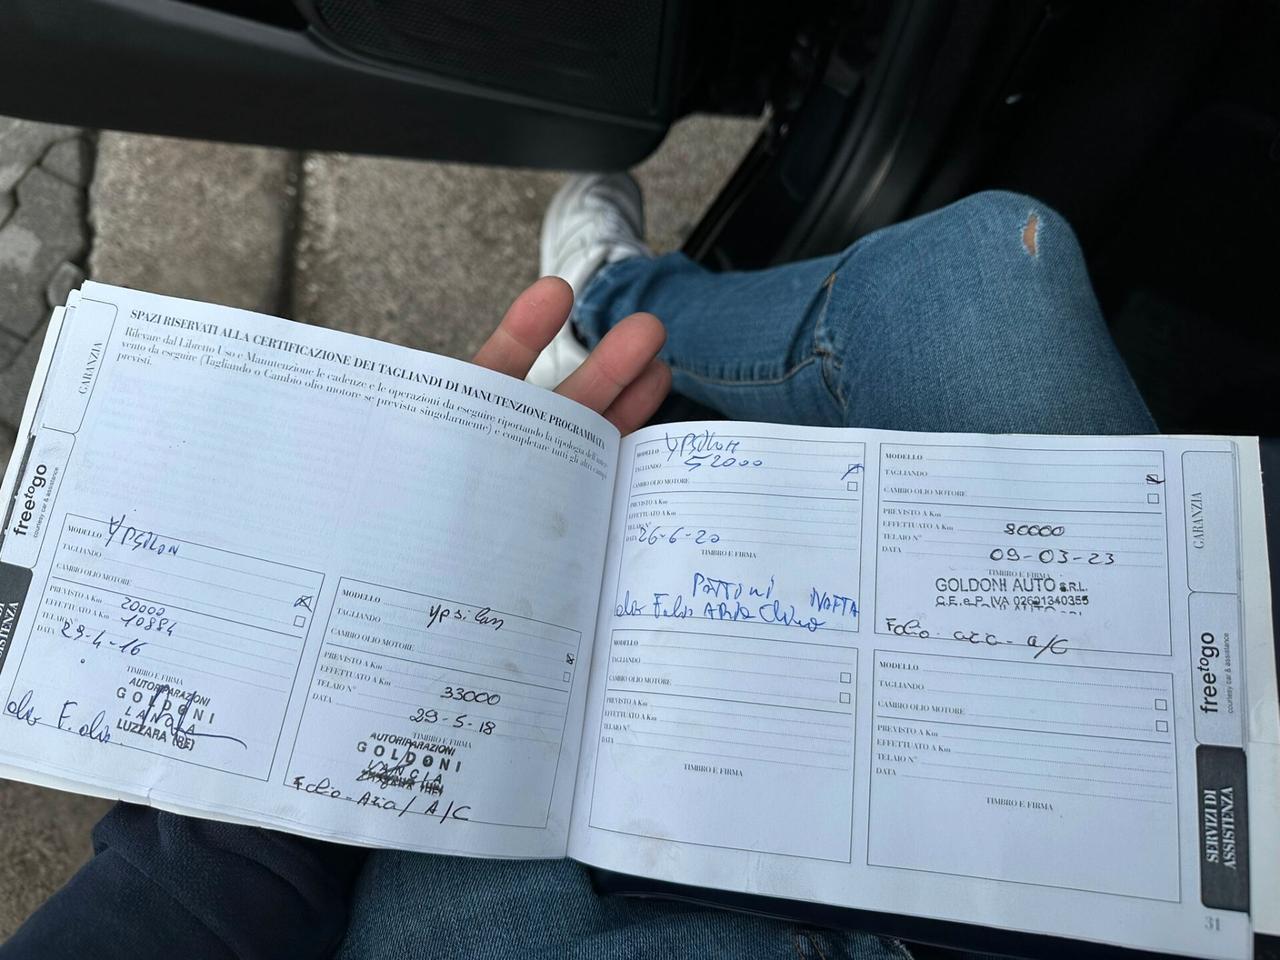 SPAZI RISERVATI ALLA CERTIFICAZIONE DEI TAGLIANDI DI MANUTENZIONE PROGRAMMATA
Rilevare dal Libretto Uso e Manutenzione le cadenze e le operazioni da eseguire riportando la tipologia dell'inter-
vento da eseguire (Tagliando o Cambio olio motore se prevista singolarmente) e completare tutti gli altri campi
previsti.
GARANZIA
freetogo
courtesy car & assistance
MODELLO YPSILON
TAGLIANDO
CAMBIO OLIO MOTORE
PREVISTO A Km 20000
EFFETTUATO A Km 10884
TELAIO N°
DATA 29-4-16
TIMBRO E FIRMA
AUTORIPARAZIONI
GOLDONI
LANCIA
LUZZARA (RE)
olio F. olio
MODELLO Ypsilon
TAGLIANDO
CAMBIO OLIO MOTORE
PREVISTO A Km
EFFETTUATO A Km 33000
TELAIO N°
DATA 29-5-18
TIMBRO E FIRMA
AUTORIPARAZIONI
GOLDONI
LANCIA
Folio-Aria/A/C
MODELLO YPSILON
TAGLIANDO 52000
CAMBIO OLIO MOTORE
PREVISTO A Km
EFFETTUATO A Km
TELAIO N°
DATA 26-6-20
TIMBRO E FIRMA
olio F.olio ARIA
MODELLO
TAGLIANDO
CAMBIO OLIO MOTORE
PREVISTO A Km
EFFETTUATO A Km 80000
TELAIO N°
DATA 09-03-23
TIMBRO E FIRMA
GOLDONI AUTO S.R.L.
C.F. e P. IVA 02601340355
Folio-aria-a/C
MODELLO
TAGLIANDO
CAMBIO OLIO MOTORE
PREVISTO A Km
EFFETTUATO A Km
TELAIO N°
DATA
TIMBRO E FIRMA
MODELLO
TAGLIANDO
CAMBIO OLIO MOTORE
PREVISTO A Km
EFFETTUATO A Km
TELAIO N°
DATA
TIMBRO E FIRMA
GARANZIA
freetogo
courtesy car & assistance
SERVIZI DI
ASSISTENZA
31